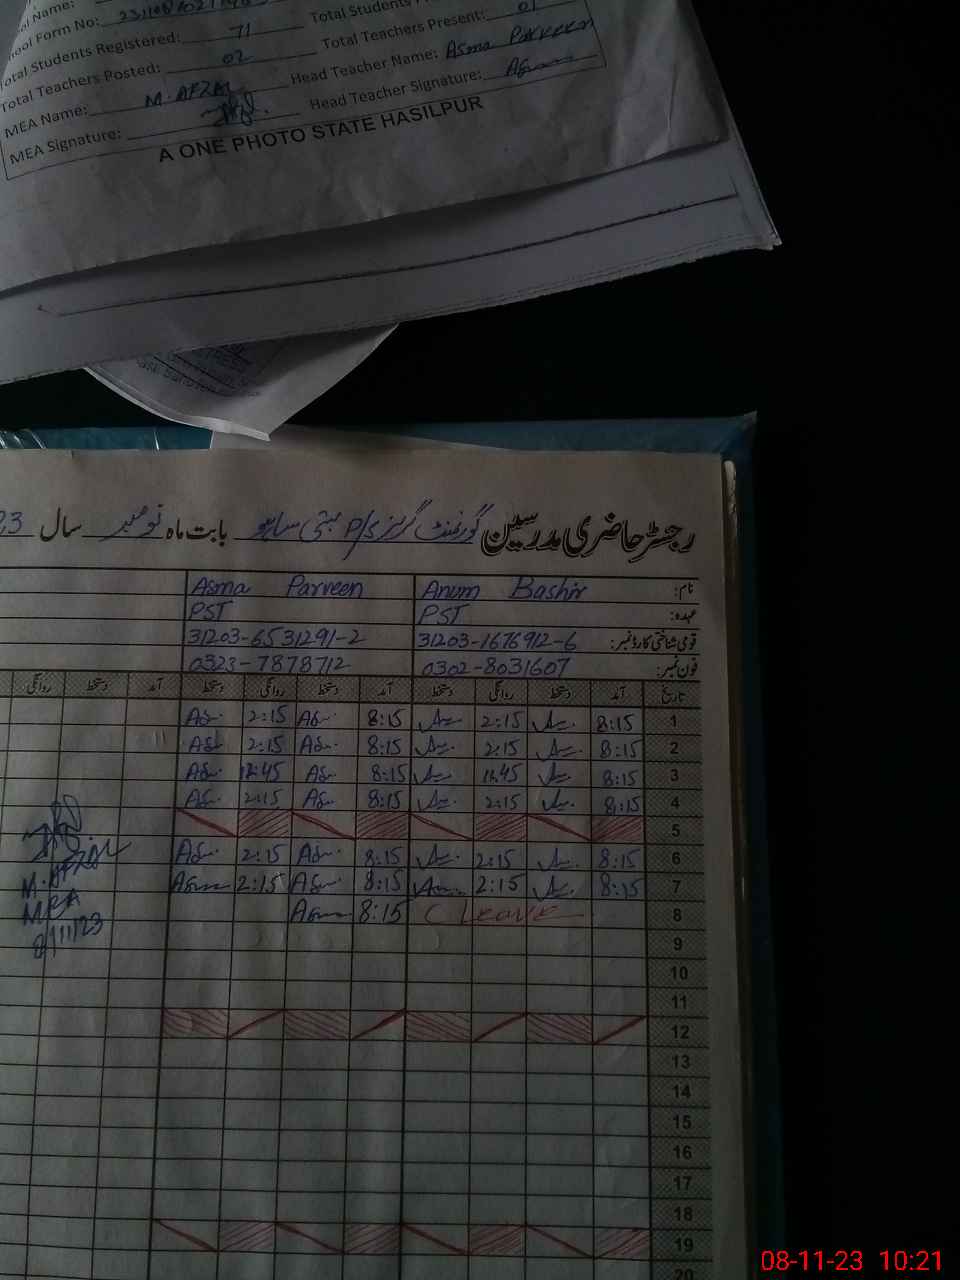 ool Name:
hool Form No:
Total Students P
Total Students Registered: 71
Total Teachers Present: 01
Total Teachers Posted: 02
Head Teacher Name: Asma Parveen
MEA Name: M. AFZAL
Head Teacher Signature:
MEA Signature:
A ONE PHOTO STATE HASILPUR
رجسٹر حاضری مدرسین گورنمنٹ گرلز P/S بستی بابت ماہ نومبر سال 23
نام: Anum Bashir Asma Parveen
عہدہ: PST PST
قومی شناختی کارڈ نمبر: 31203-1676912-6 31203-6531291-2
فون نمبر: 0302-8031607 0323-7878712
تاریخ آمد دستخط روانگی دستخط آمد دستخط روانگی دستخط آمد دستخط روانگی
1 8:15 2:15 8:15 2:15
2 8:15 2:15 8:15 2:15
3 8:15 12:45 8:15 12:45
4 8:15 2:15 8:15 2:15
5
6 8:15 2:15 8:15 2:15
7 8:15 2:15 8:15 2:15
8 C Leave 8:15
M. AFZAL
MEA
8/11/23
9
10
11
12
13
14
15
16
17
18
19
20
08-11-23 10:21